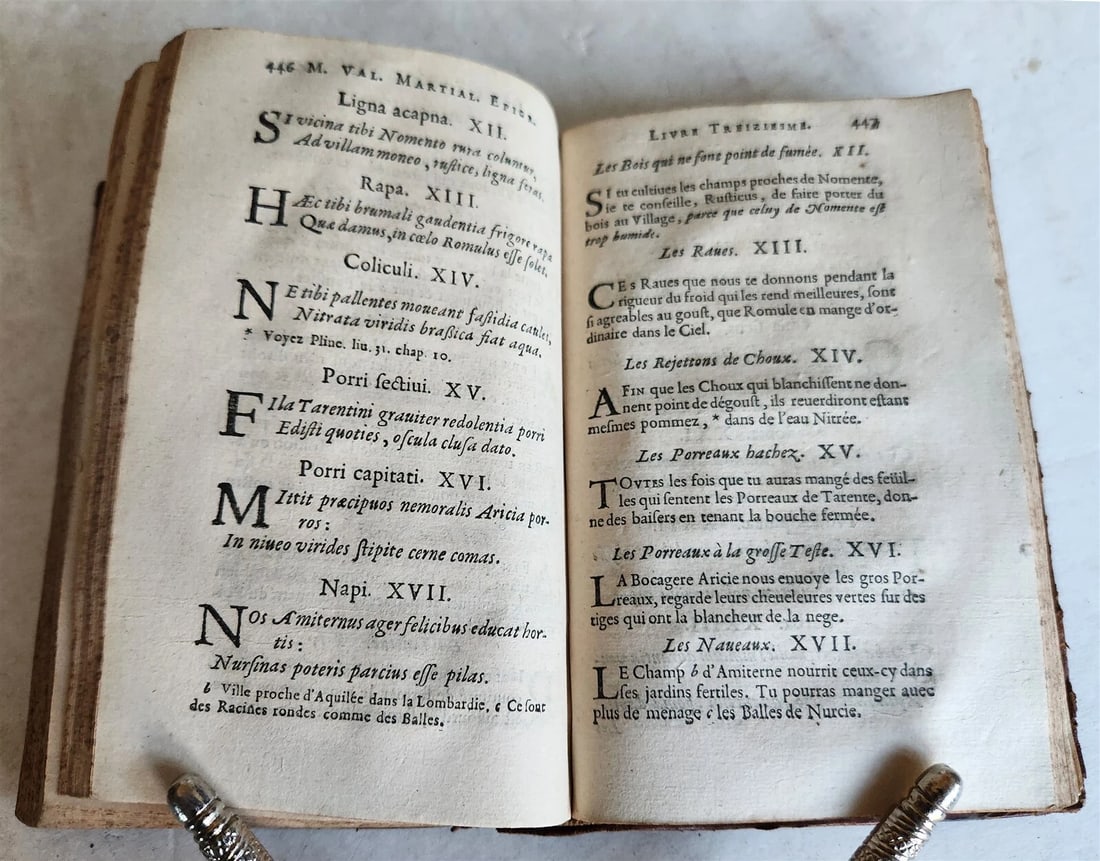 446 M. VAL. MARTIAL. EPIGR.
Ligna acapna. XII.
SI vicina tibi Nomento rura coluntur,
Ad villam moneo, rustice, ligna feras.
Rapa. XIII.
HÆc tibi brumali gaudentia frigore rapa
Quæ damus, in cœlo Romulus esse solet.
Coliculi. XIV.
NE tibi pallentes moueant fastidia caules,
Nitrata viridis brassica fiat aqua.
* Voyez Pline. liu. 31. chap. 10.
Porri sectiui. XV.
FIla Tarentini grauiter redolentia porri
Edisti quoties, oscula clusa dato.
Porri capitati. XVI.
MIttit præcipuos nemoralis Aricia por-
ros:
In niueo virides stipite cerne comas.
Napi. XVII.
NOs Amiternus ager felicibus educat hor-
tis:
Nursinas poteris parcius esse pilas.
b Ville proche d'Aquilée dans la Lombardie, c Ce sont
des Racines rondes comme des Balles.
LIVRE TREIZIESME. 447
Les Bois qui ne font point de fumée. XII.
SI tu cultiues les champs proches de Nomente,
ie te conseille, Rusticus, de faire porter du
bois au Village, parce que celuy de Nomente est
trop humide.
Les Raues. XIII.
CEs Raues que nous te donnons pendant la
rigueur du froid qui les rend meilleures, sont
si agreables au goust, que Romule en mange d'or-
dinaire dans le Ciel.
Les Rejettons de Choux. XIV.
AFIN que les Choux qui blanchissent ne don-
nent point de dégoust, ils reuerdiront estans
mesmes pommez, * dans de l'eau Nitrée.
Les Porreaux hachez. XV.
TOVTES les fois que tu auras mangé des feüil-
les qui sentent les Porreaux de Tarente, don-
ne des baisers en tenant la bouche fermée.
Les Porreaux à la grosse Teste. XVI.
LA Bocagere Aricie nous enuoye les gros Por-
reaux, regarde leurs cheueleures vertes sur des
tiges qui ont la blancheur de la nege.
Les Naueaux. XVII.
LE Champ b d'Amiterne nourrit ceux-cy dans
ses jardins fertiles. Tu pourras manger auec
plus de menage c les Balles de Nurcie.